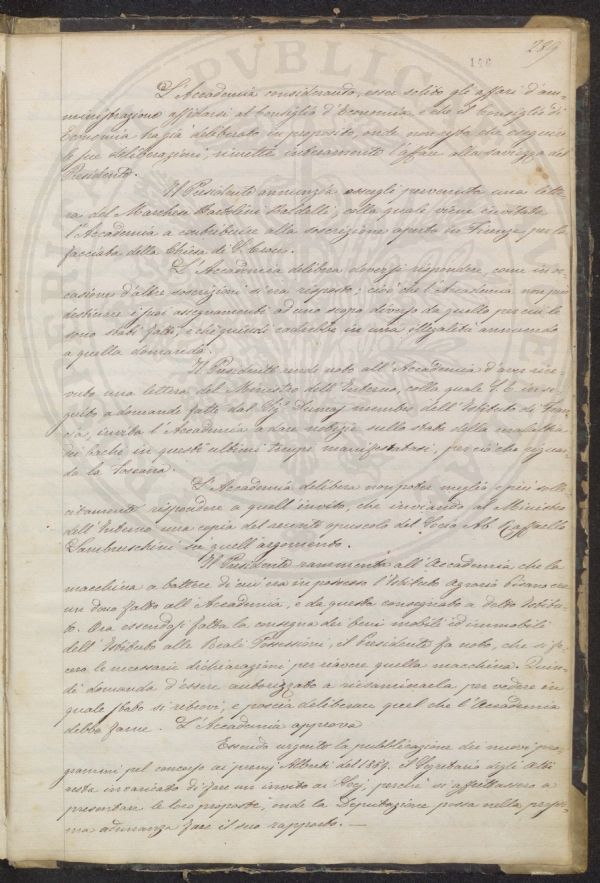 289
146
L'Accademia considerando, esser solito gli affari d'am-
ministrazione affidarsi al Consiglio d'Economia, e che il Consiglio di
Economia ha già deliberato in proposito, onde non resta che eseguire
le sue deliberazioni, rimette interamente l'affare alla saviezza del
Presidente.
Il Presidente annunzia essergli pervenuta una lette-
ra del Marchese Bartolini Baldelli, colla quale viene invitata
l'Accademia a contribuire alla soscrizione aperta in Firenze per la
facciata della Chiesa di S. Croce.
L'Accademia delibera doversi rispondere come in oc-
casione d'altre soscrizioni si era risposto; cioè che l'Accademia non può
destinare i suoi assegnamenti ad uno scopo diverso da quello per cui le
sono stati fatti, e che quindi cadrebbe in una illegalità annuendo
a quella domanda.
Il Presidente rende noto all'Accademia d'aver rice-
vuto una lettera del Ministro dell'Interno, colla quale S. E. in se-
guito a domande fatte dal Sig. Dumas membro dell'Istituto di Fran-
cia, invita l'Accademia a dare notizie sullo stato della malattia
dei bachi in questi ultimi tempi manifestatasi, per ciò che riguar-
da la Toscana.
L'Accademia delibera non poter meglio e più solle-
citamente rispondere a quell'invito, che inviando al Ministro
dell'Interno una copia del recente opuscolo del Socio Ab. Raffaello
Lambruschini su quell'argomento.
Il Presidente rammenta all'Accademia che la
macchina a battere di cui era in possesso l'Istituto Agrario Pisano era
un dono fatto all'Accademia, e da questa consegnato a detto Istitu-
to. Ora essendosi fatta la consegna dei beni mobili ed immobili
dell'Istituto alle Reali Possessioni, il Presidente fa noto, che si fe-
cero le necessarie dichiarazioni per riavere quella macchina. Quin-
di domanda d'essere autorizzato a riesaminarla per vedere in
quale stato si ritrovi; e poscia deliberare quel che l'Accademia
debba farne. L'Accademia approva
Essendo urgente la pubblicazione dei nuovi pro-
grammi pel concorso ai premj Alberti del 1859. il Segretario degli Atti
resta incaricato di fare un invito ai Socj, perchè si affrettassero a
presentare le loro proposte, onde la Deputazione possa nella prossi-
ma adunanza fare il suo rapporto. —